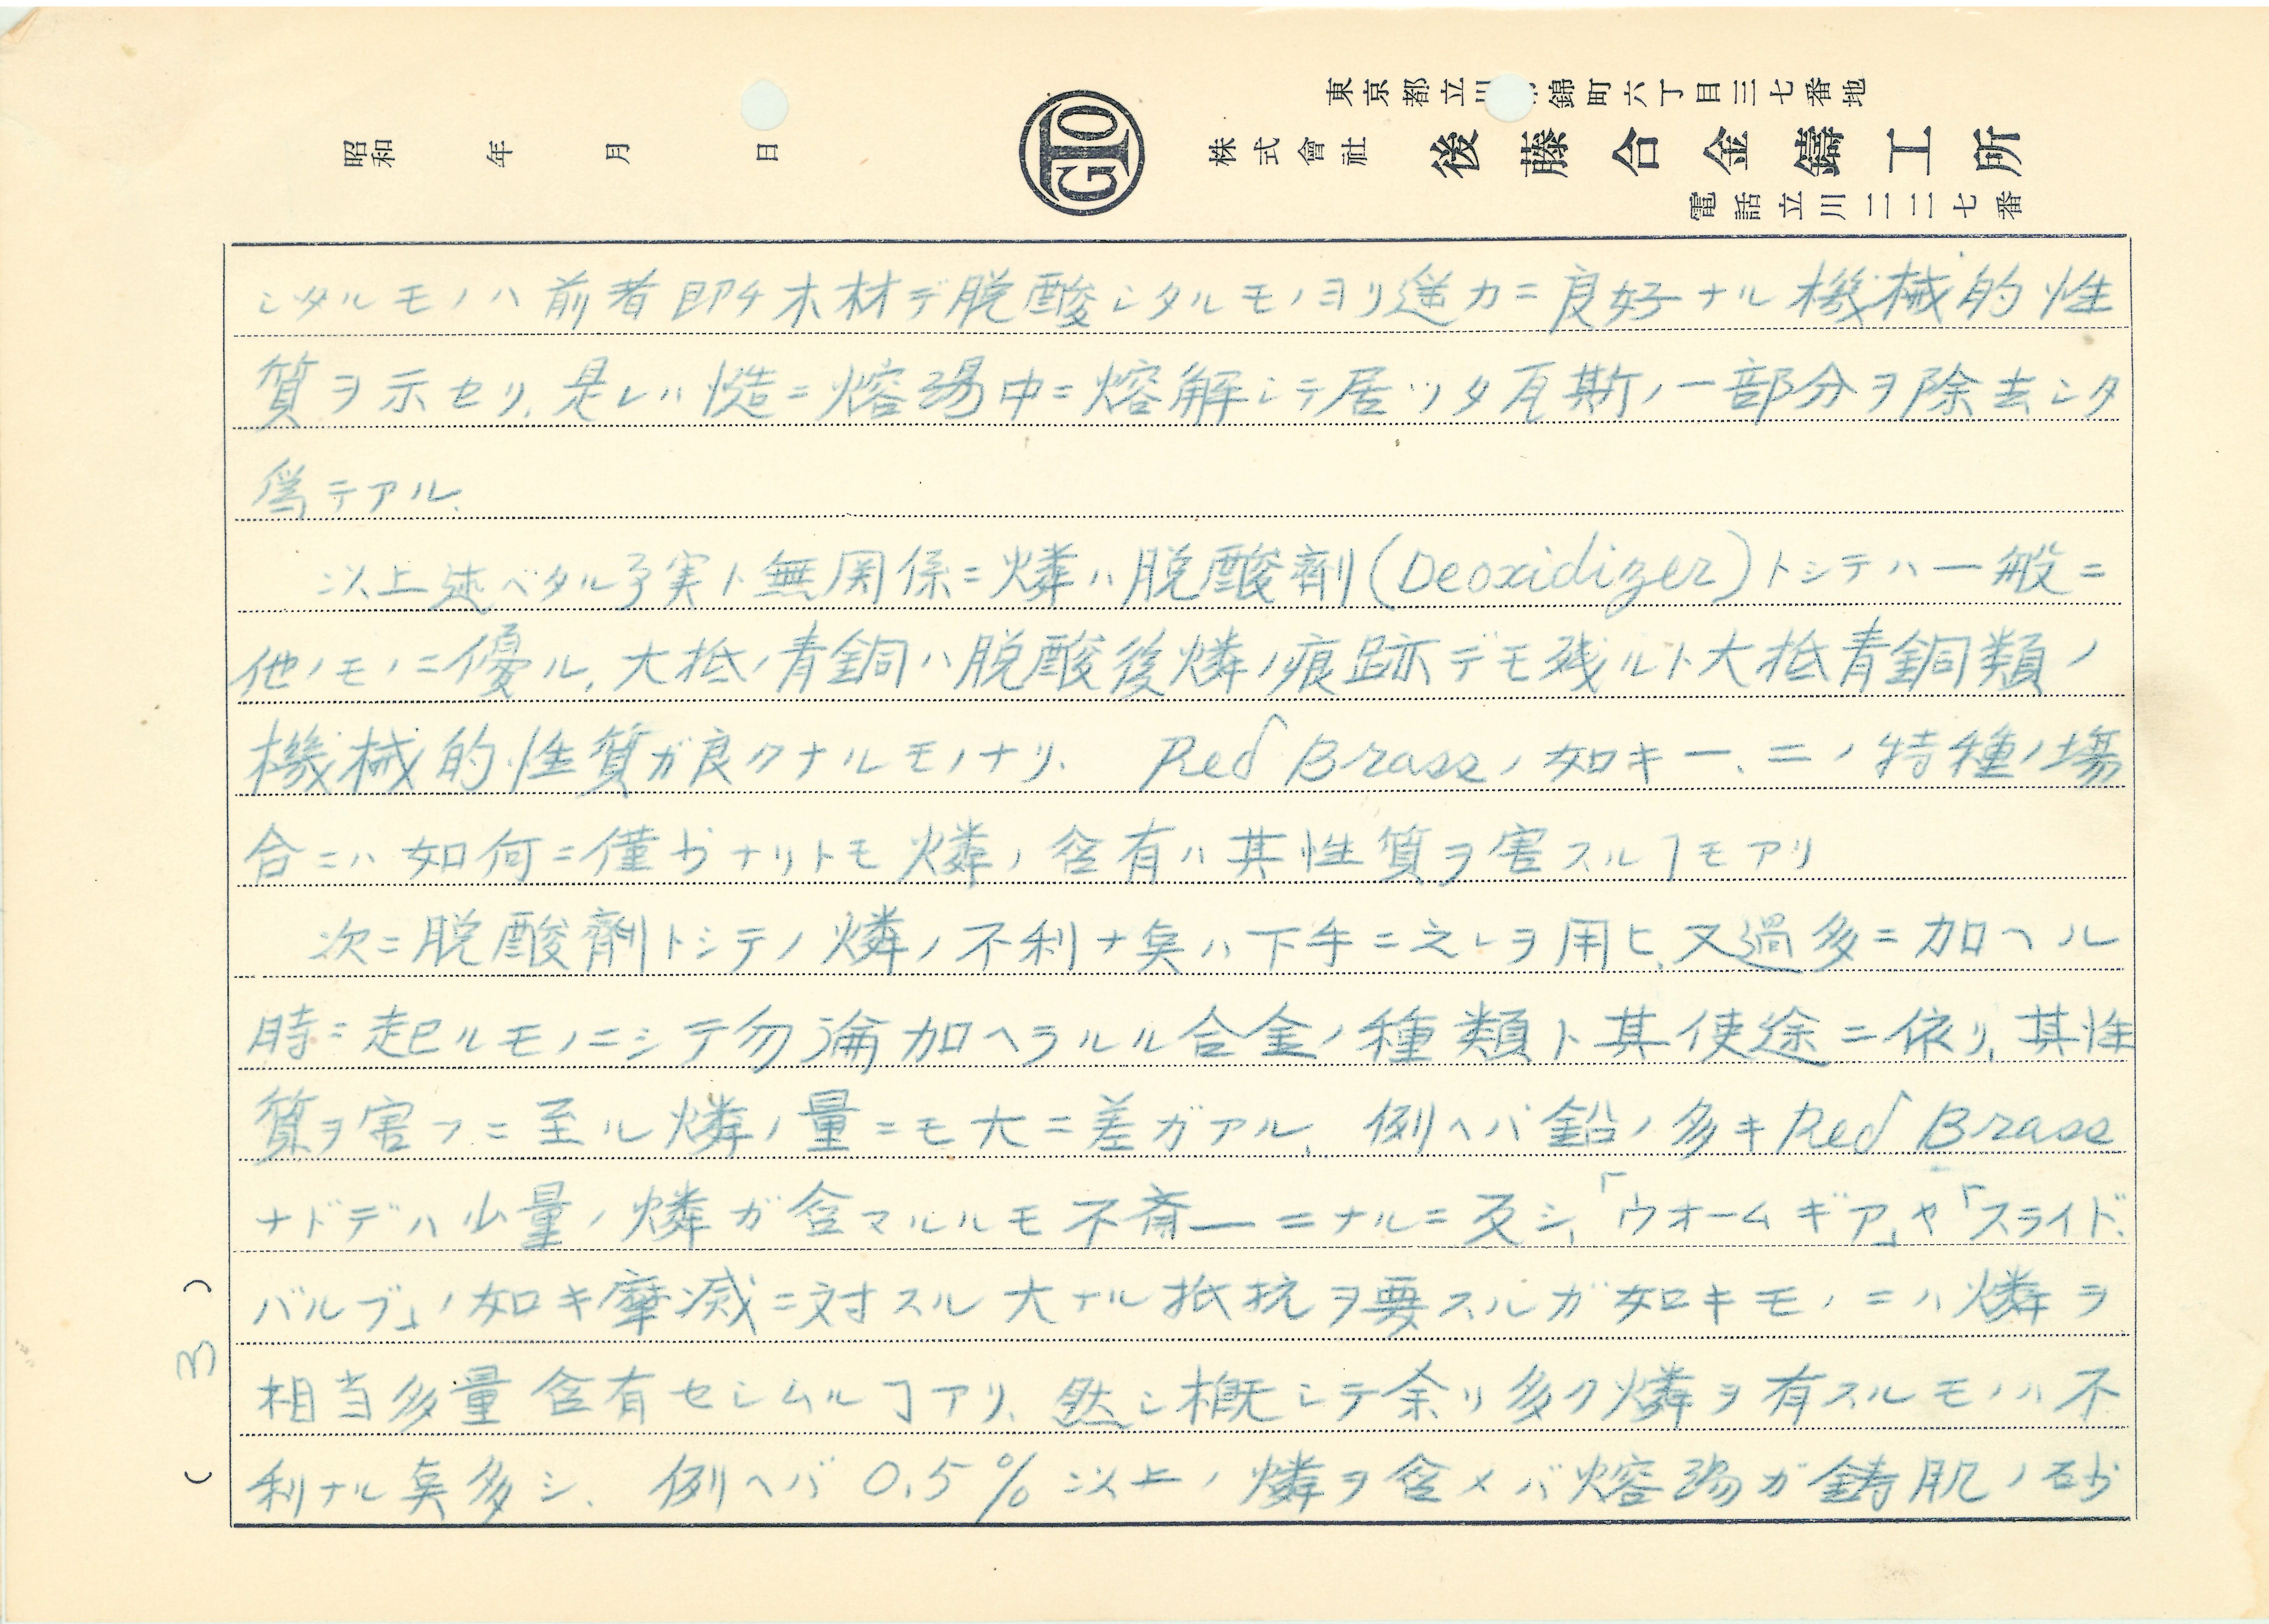 東京都立川 錦町六丁目三七番地
株式會社 後藤合金鑄工所
電話立川二二七番
GTO
昭和 年 月 日
シタルモノハ前者即チ木材デ脱酸シタルモノヨリ遥カニ良好ナル機械的性
質ヲ示セリ、是レハ慥ニ熔湯中ニ熔解シテ居ツタ瓦斯ノ一部分ヲ除去シタ
為テアル、
以上述ベタル事実ト無関係ニ燐ハ脱酸剤(Deoxidizer)トシテハ一般ニ
他ノモノニ優ル、大抵ノ青銅ハ脱酸後燐ノ痕跡デモ残ルト大抵青銅類ノ
機械的性質ガ良クナルモノナリ、 Red Brassノ如キ一、二ノ特種ノ場
合ニハ如何ニ僅カナリトモ燐ノ含有ハ其性質ヲ害スルヿモアリ
次ニ脱酸剤トシテノ燐ノ不利ナ奌ハ下手ニ之レヲ用ヒ、又過多ニ加ヘル
時ニ起ルモノニシテ勿論加ヘラルル合金ノ種類ト其使途ニ依リ、其性
質ヲ害フニ至ル燐ノ量ニモ大ニ差ガアル、 例ヘバ鉛ノ多キRed Brass
ナドデハ少量ノ燐ガ含マルルモ不斉一ニナルニ反シ、「ウオームギア」ヤ「スライド、
バルブ」ノ如キ摩滅ニ対スル大ナル抵抗ヲ要スルガ如キモノニハ燐ヲ
相当多量含有セシムルヿアリ、然シ概シテ余リ多ク燐ヲ有スルモノハ不
利ナル奌多シ、 例ヘバ0.5%以上ノ燐ヲ含メバ熔湯ガ鋳肌ノ砂
(3)